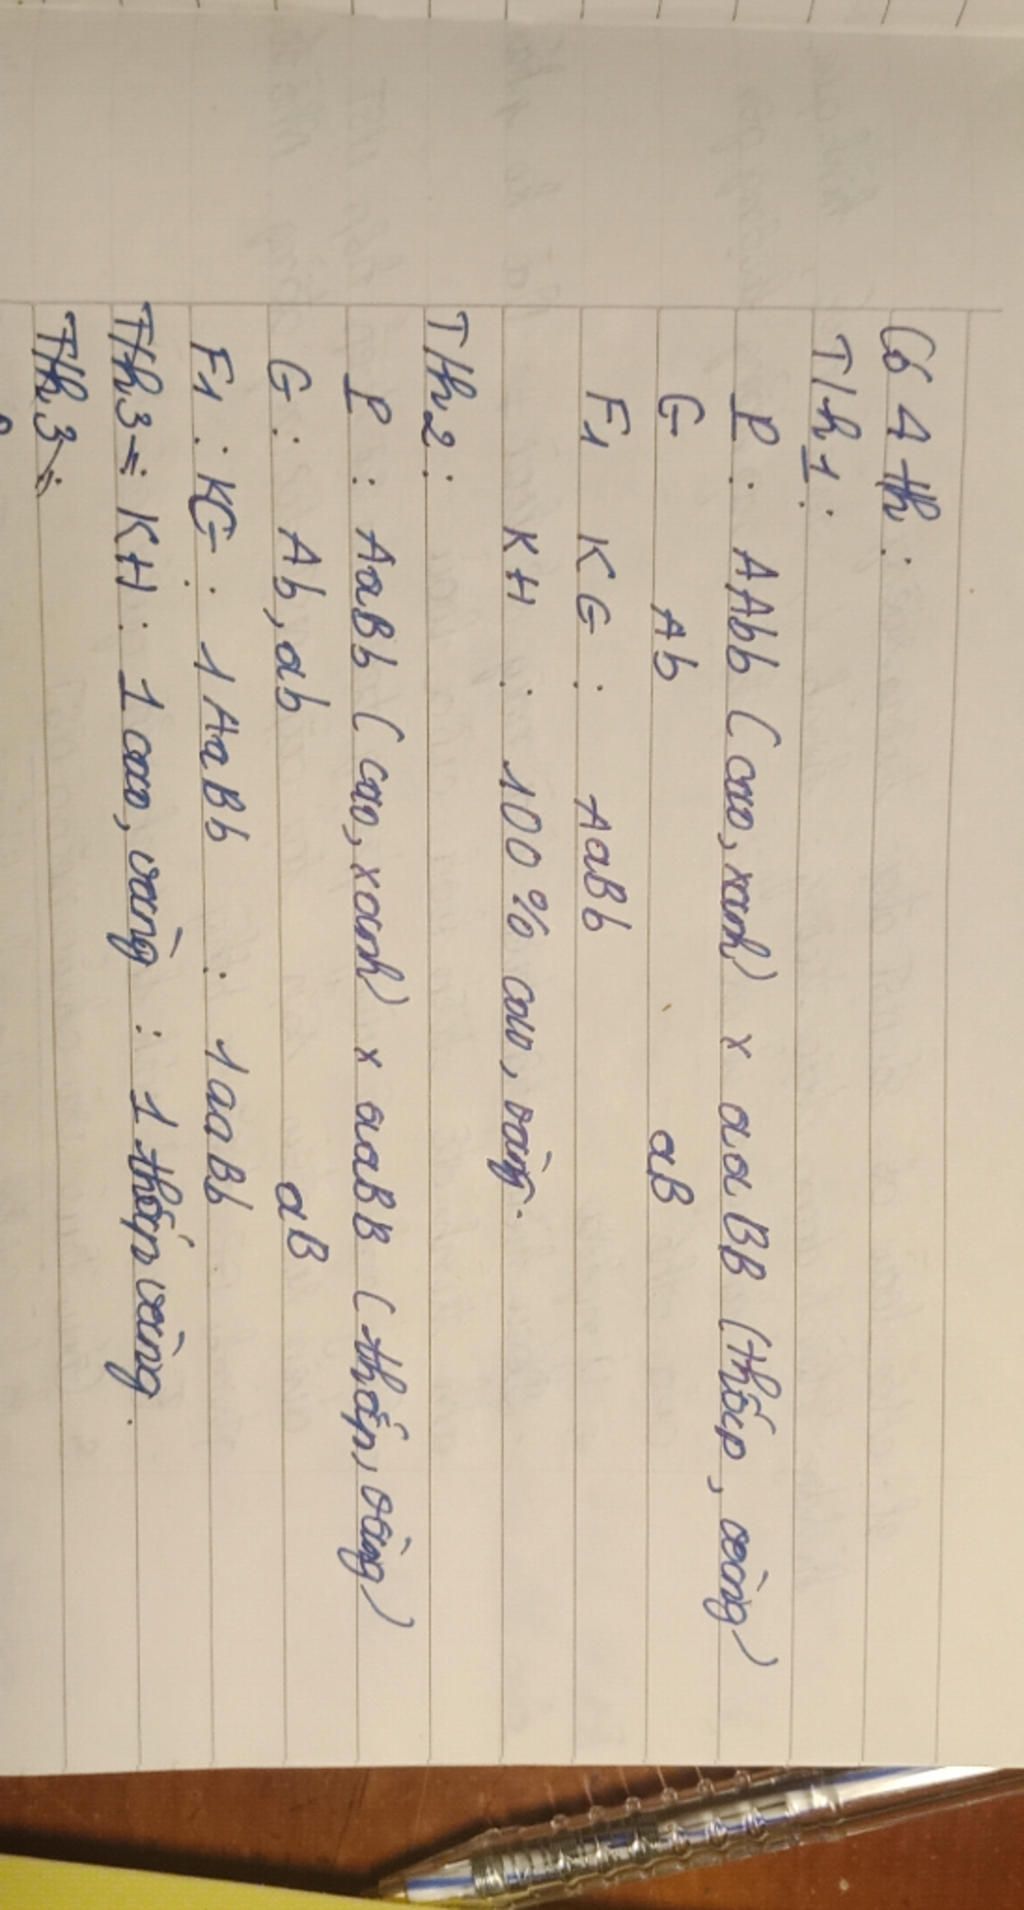 Có 4 th :
Th1 :
P : AAbb (cao, xanh) x aaBB (thấp, vàng)
G Ab aB
F1 KG : AaBb
KH : 100% cao, vàng.
Th2 :
P : AaBb (cao, xanh) x aaBB (thấp, vàng)
G : Ab, ab aB
F1 : KG : 1AaBb : 1aaBb
Th3 : KH : 1 cao, vàng : 1 thấp vàng.
Th3 :